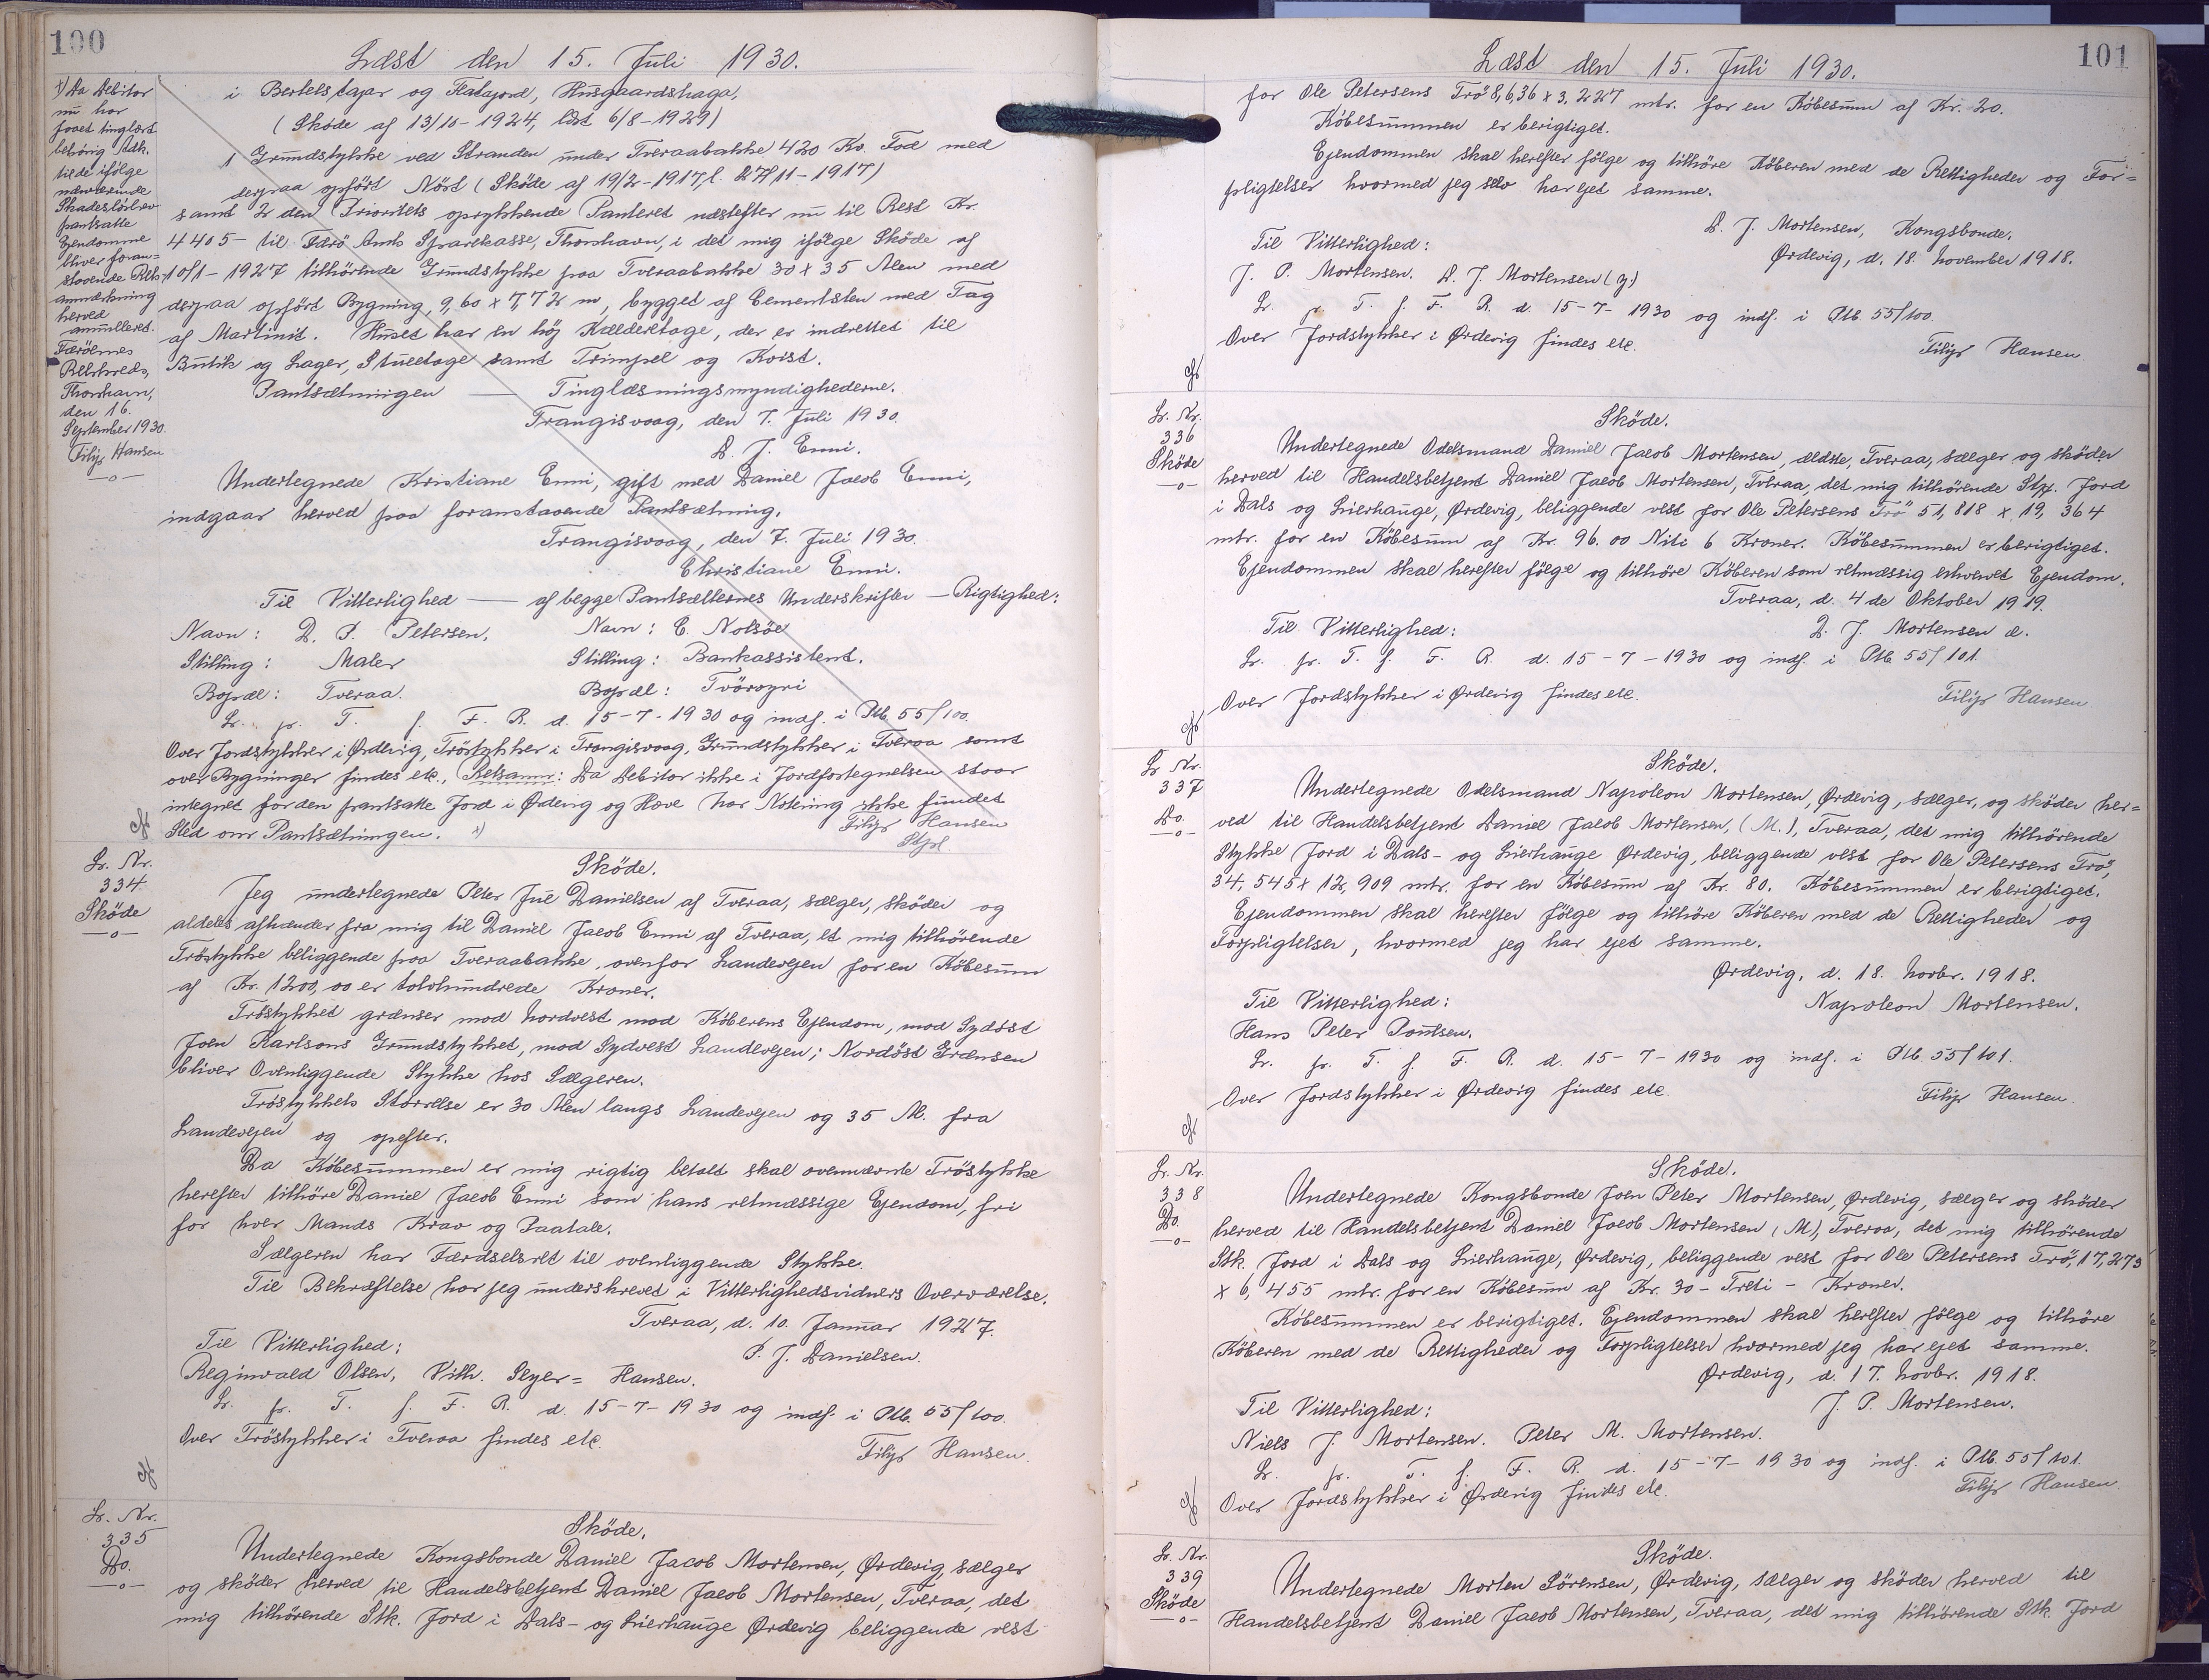 100
Læst den 15. Juli 1930.
x) Da Debitor
nu har
faaet tinglæst
behörig Adk.
til de ifölge
nærværende
Skadeslösbrev
pantsatte
Ejendomme
bliver foran=
staaende Rets=
anmærkning
herved
annulleret.
Færöernes
Retskreds,
Thorshavn,
den 16.
September 1930.
Filip Hansen
—o—
i Bertelstajar og Flatajord, Husgaardshaga,
(Sköde af 13/10-1924, læst 6/8-1929)
1 Grundstykke ved Stranden under Tveraabakke 420 Kv. Fod med
derpaa opfört Nöst (Sköde af 19/2-1917, l. 27/11-1917)
samt 2 den Prioritets oprykkende Panteret næstefter nu til Rest Kr.
4405- til Færö Amts Sparekasse, Thorshavn, i det mig ifölge Sköde af
10/1-1927 tilhörende Grundstykke paa Tveraabakke 30 x 35 Alen med
derpaa opfört Bygning, 9,60 x 7,72 m, bygget af Cementsten med Tag
af Martinit. Huset har en höj Kælderetage, der er indrettet til
Butik og Lager, Stueetage samt Trimpel og Kvist.
Pantsætningen — Tinglæsningsmyndighederne.
Trangisvaag, den 7. Juli 1930.
D. J. Enni.
Undertegnede Kristiane Enni, gift med Daniel Jacob Enni,
indgaar herved paa foranstaaende Pantsætning.
Trangisvaag, den 7. Juli 1930.
Christiane Enni.
Til Vitterlighed — af begge Pantsætternes Underskrifter — Rigtighed:
Navn: D. P. Petersen. Navn: E. Nolsöe
Stilling: Maler Stilling: Bankassistent.
Bopæl: Tveraa. Bopæl: Tvöroyri
Lr. pr. T. f. F. R. d. 15-7-1930 og indf. i Ptb. 55/100.
Over Jordstykker i Ørdevig, Tröstykker i Trangisvaag, Grundstykker i Tveraa samt
over Bygninger findes etc., Retsanm: Da Debitor ikke i Jordfortegnelsen staar
integnet for den pantsatte Jord i Ørdevig og Hove har Notering ikke fundet
Sted om Pantsætningen. x) Filip Hansen
Stjpl
Lr. Nr.
334
Sköde
—o—
Sköde.
Jeg undertegnede Peter Jue Danielsen af Tveraa, sælger, sköder og
aldeles afhænder fra mig til Daniel Jacob Enni af Tveraa, et mig tilhörende
Tröstykke beliggende paa Tveraabakke, ovenfor Landevejen for en Köbesum
af Kr. 1200,00 er tolvhundrede Kroner.
Tröstykket grænser mod Nordvest mod Köberens Ejendom, mod Sydöst
Joen Karlsons Grundstykket, mod Sydvest Landevejen; Nordöst Grænsen
bliver Ovenliggende Stykke hos Sælgeren.
Tröstykkets Störrelse er 30 Alen langs Landevejen og 35 Al. fra
Landevejen og opefter.
Da Köbesummen er mig rigtig betalt skal ovennævnte Tröstykke
herefter tilhöre Daniel Jacob Enni som hans retmæssige Ejendom, fri
for hver Mands Krav og Paatale.
Sælgeren har Færdselsret til ovenliggende Stykke.
Til Bekræftelse har jeg underskrevet i Vitterlighedsvidners Overværelse.
Tveraa, d. 10. Januar 1927.
Til Vitterlighed: P. J. Danielsen.
Reginvald Olsen, Vilh. Seyer= Hansen.
Lr. pr. T. f. F. R. d. 15-7-1930 og indf. i Ptb. 55/100.
Over Tröstykker i Tveraa findes etc.
Filip Hansen.
Lr. Nr.
335
Do.
—o—
Sköde.
Undertegnede Kongsbonde Daniel Jacob Mortensen, Ørdevig, sælger
og sköder herved til Handelsbetjent Daniel Jacob Mortensen, Tveraa, det
mig tilhörende Stk. Jord i Dals- og Lierhauge Ørdevig beliggende vest
101
Læst den 15. Juli 1930.
for Ole Petersens Trö 8,636 x 3,227 mtr. for en Köbesum af Kr. 20.
Köbesummen er berigtiget.
Ejendommen skal herefter fölge og tilhöre Köberen med de Rettigheder og For=
pligtelser hvormed jeg selv har ejet samme.
D. J. Mortensen, Kongsbonde.
Til Vitterlighed: Ørdevig, d. 18. November 1918.
J. P. Mortensen. D. J. Mortensen (y.)
Lr. pr. T. f. F. R. d. 15-7-1930 og indf. i Ptb. 55/100.
Over Jordstykker i Ørdevig findes etc.
Filip Hansen.
Lr. Nr.
336
Sköde
—o—
Sköde.
Undertegnede Odelsmand Daniel Jacob Mortensen, ældste, Tveraa, sælger og sköder
herved til Handelsbetjent Daniel Jacob Mortensen, Tveraa, det mig tilhörende Stk. Jord
i Dals og Lierhauge, Ørdevig, beliggende vest for Ole Petersens Trö 51,818 x 19,364
mtr. for en Köbesum af Kr. 96.00 Niti 6 Kroner. Köbesummen er berigtiget.
Ejendommen skal herefter fölge og tilhöre Köberen som retmæssig erhvervet Ejendom.
Tveraa, d. 4de Oktober 1919.
Til Vitterlighed: D. J. Mortensen æ.
Lr. pr. T. f. F. R. d. 15-7-1930 og indf. i Ptb. 55/101.
Over Jordstykker i Ørdevig findes etc. Filip Hansen
Lr Nr.
337
Do.
—o—
Sköde.
Undertegnede Odelsmand Napoleon Mortensen, Ørdevig, sælger, og sköder her=
ved til Handelsbetjent Daniel Jacob Mortensen, (M.), Tveraa, det mig tilhörende
Stykke Jord i Dals- og Lierhauge Ørdevig, beliggende vest for Ole Petersens Trö,
34,545 x 12,909 mtr. for en Köbesum af Kr. 80. Köbesummen er berigtiget.
Ejendommen skal herefter fölge og tilhöre Köberen med de Rettigheder og
Forpligtelser, hvormed jeg har ejet samme.
Ørdevig, d. 18. Novbr. 1918.
Til Vitterlighed: Napoleon Mortensen.
Hans Peter Poulsen.
Lr. pr. T. f. F. R. d. 15-7-1930 og indf. i Ptb. 55/101.
Over Jordstykker i Ørdevig findes etc. Filip Hansen.
Lr. Nr.
338
Do.
—o—
Sköde.
Undertegnede Kongsbonde Joen Peter Mortensen, Ørdevig, sælger og sköder
herved til Handelsbetjent Daniel Jacob Mortensen (M), Tveraa, det mig tilhörende
Stk. Jord i Dals og Lierhauge, Ørdevig, beliggende vest for Ole Petersens Trö, 17,273
x 6,455 mtr. for en Köbesum af Kr. 30 - Treti - Kroner.
Köbesummen er berigtiget. Ejendommen skal herefter fölge og tilhöre
Köberen med de Rettigheder og Forpligtelser hvormed jeg har ejet samme.
Ørdevig, d. 17. Novbr. 1918.
Til Vitterlighed: J. P. Mortensen.
Niels J. Mortensen. Peter M. Mortensen.
Lr. pr. T. f. F. R. d. 15-7-1930 og indf. i Ptb. 55/101.
Over Jordstykker i Ørdevig findes etc. Filip Hansen.
Lr. Nr.
339
Sköde
—o—
Sköde.
Undertegnede Morten Sörensen, Ørdevig, sælger og sköder herved til
Handelsbetjent Daniel Jacob Mortensen, Tveraa, det mig tilhörende Stk. Jord